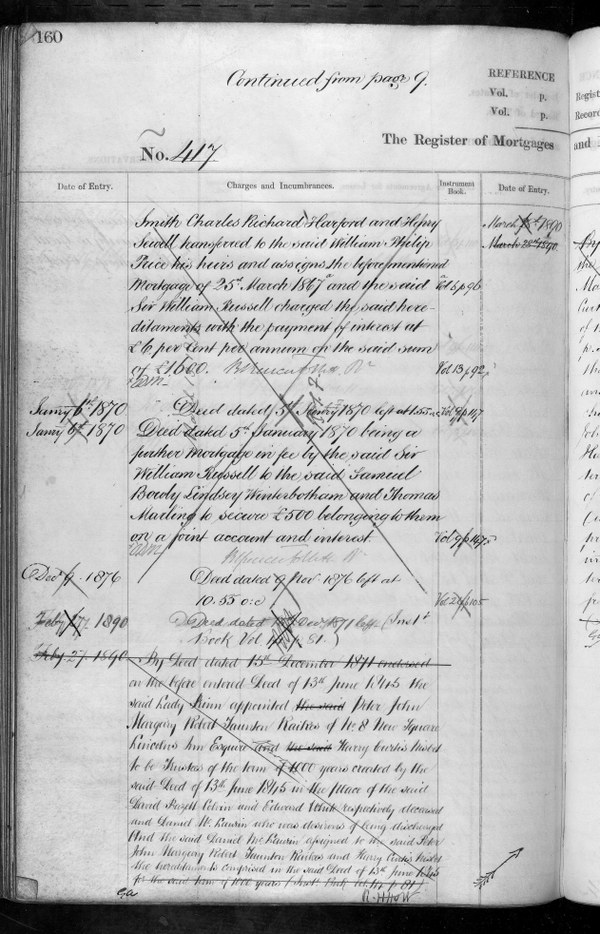 160
Continued from page 9.
REFERENCE
Vol. p.
Vol. p.
No. 417
The Register of Mortgages
Date of Entry.
Charges and Incumbrances.
Instrument Book.
Date of Entry.
Smith Charles Richard Harford and Henry
Sewell transferred to the said William Philip
Price his heirs and assigns the before mentioned
Mortgage of 25th March 1867 and the said Vol 6 p 96
Sir William Russell charged the said here-
ditaments with the payment of interest at
£6 per Cent per annum on the said sum
of £1500. Vol 13 p 92
Janry 6th 1870 Deed dated 5th Janry 1870 left at
Janry 6th 1870 Deed dated 5th January 1870 being a
further Mortgage in fee by the said Sir
William Russell to the said Samuel
Bowly Lindsey Winterbotham and Thomas
Marling to secure £500 belonging to them
on a joint account and interest Vol 9 p
Decr 9 1876 Deed dated 9 Novr 1876 left at
10.55 o.c.
Feby 27 1890 Deed dated Decr 1871 (Inst
Book Vol p 81)
Feby 27 1890 By Deed dated 15th December 1871 endorsed
on the before entered Deed of 13th June 1845 the
said Lady appointed the said Peter John
Margary Robert Taunton Raikes of No. 8 New Square
Lincolns Inn Esquire and the said Harry Curtis Nisbet
to be Trustees of the term of 1000 years created by the
said Deed of 13th June 1845 in the place of the said
David and Edward respectively deceased
and Daniel who was desirous of being discharged
And the said Daniel assigned to the said Peter
John Margary Robert Taunton Raikes and Harry Curtis Nisbet
the hereditaments comprised in the said Deed of 13th June 1845
for the said term of 1000 years
March 1890
March 1890